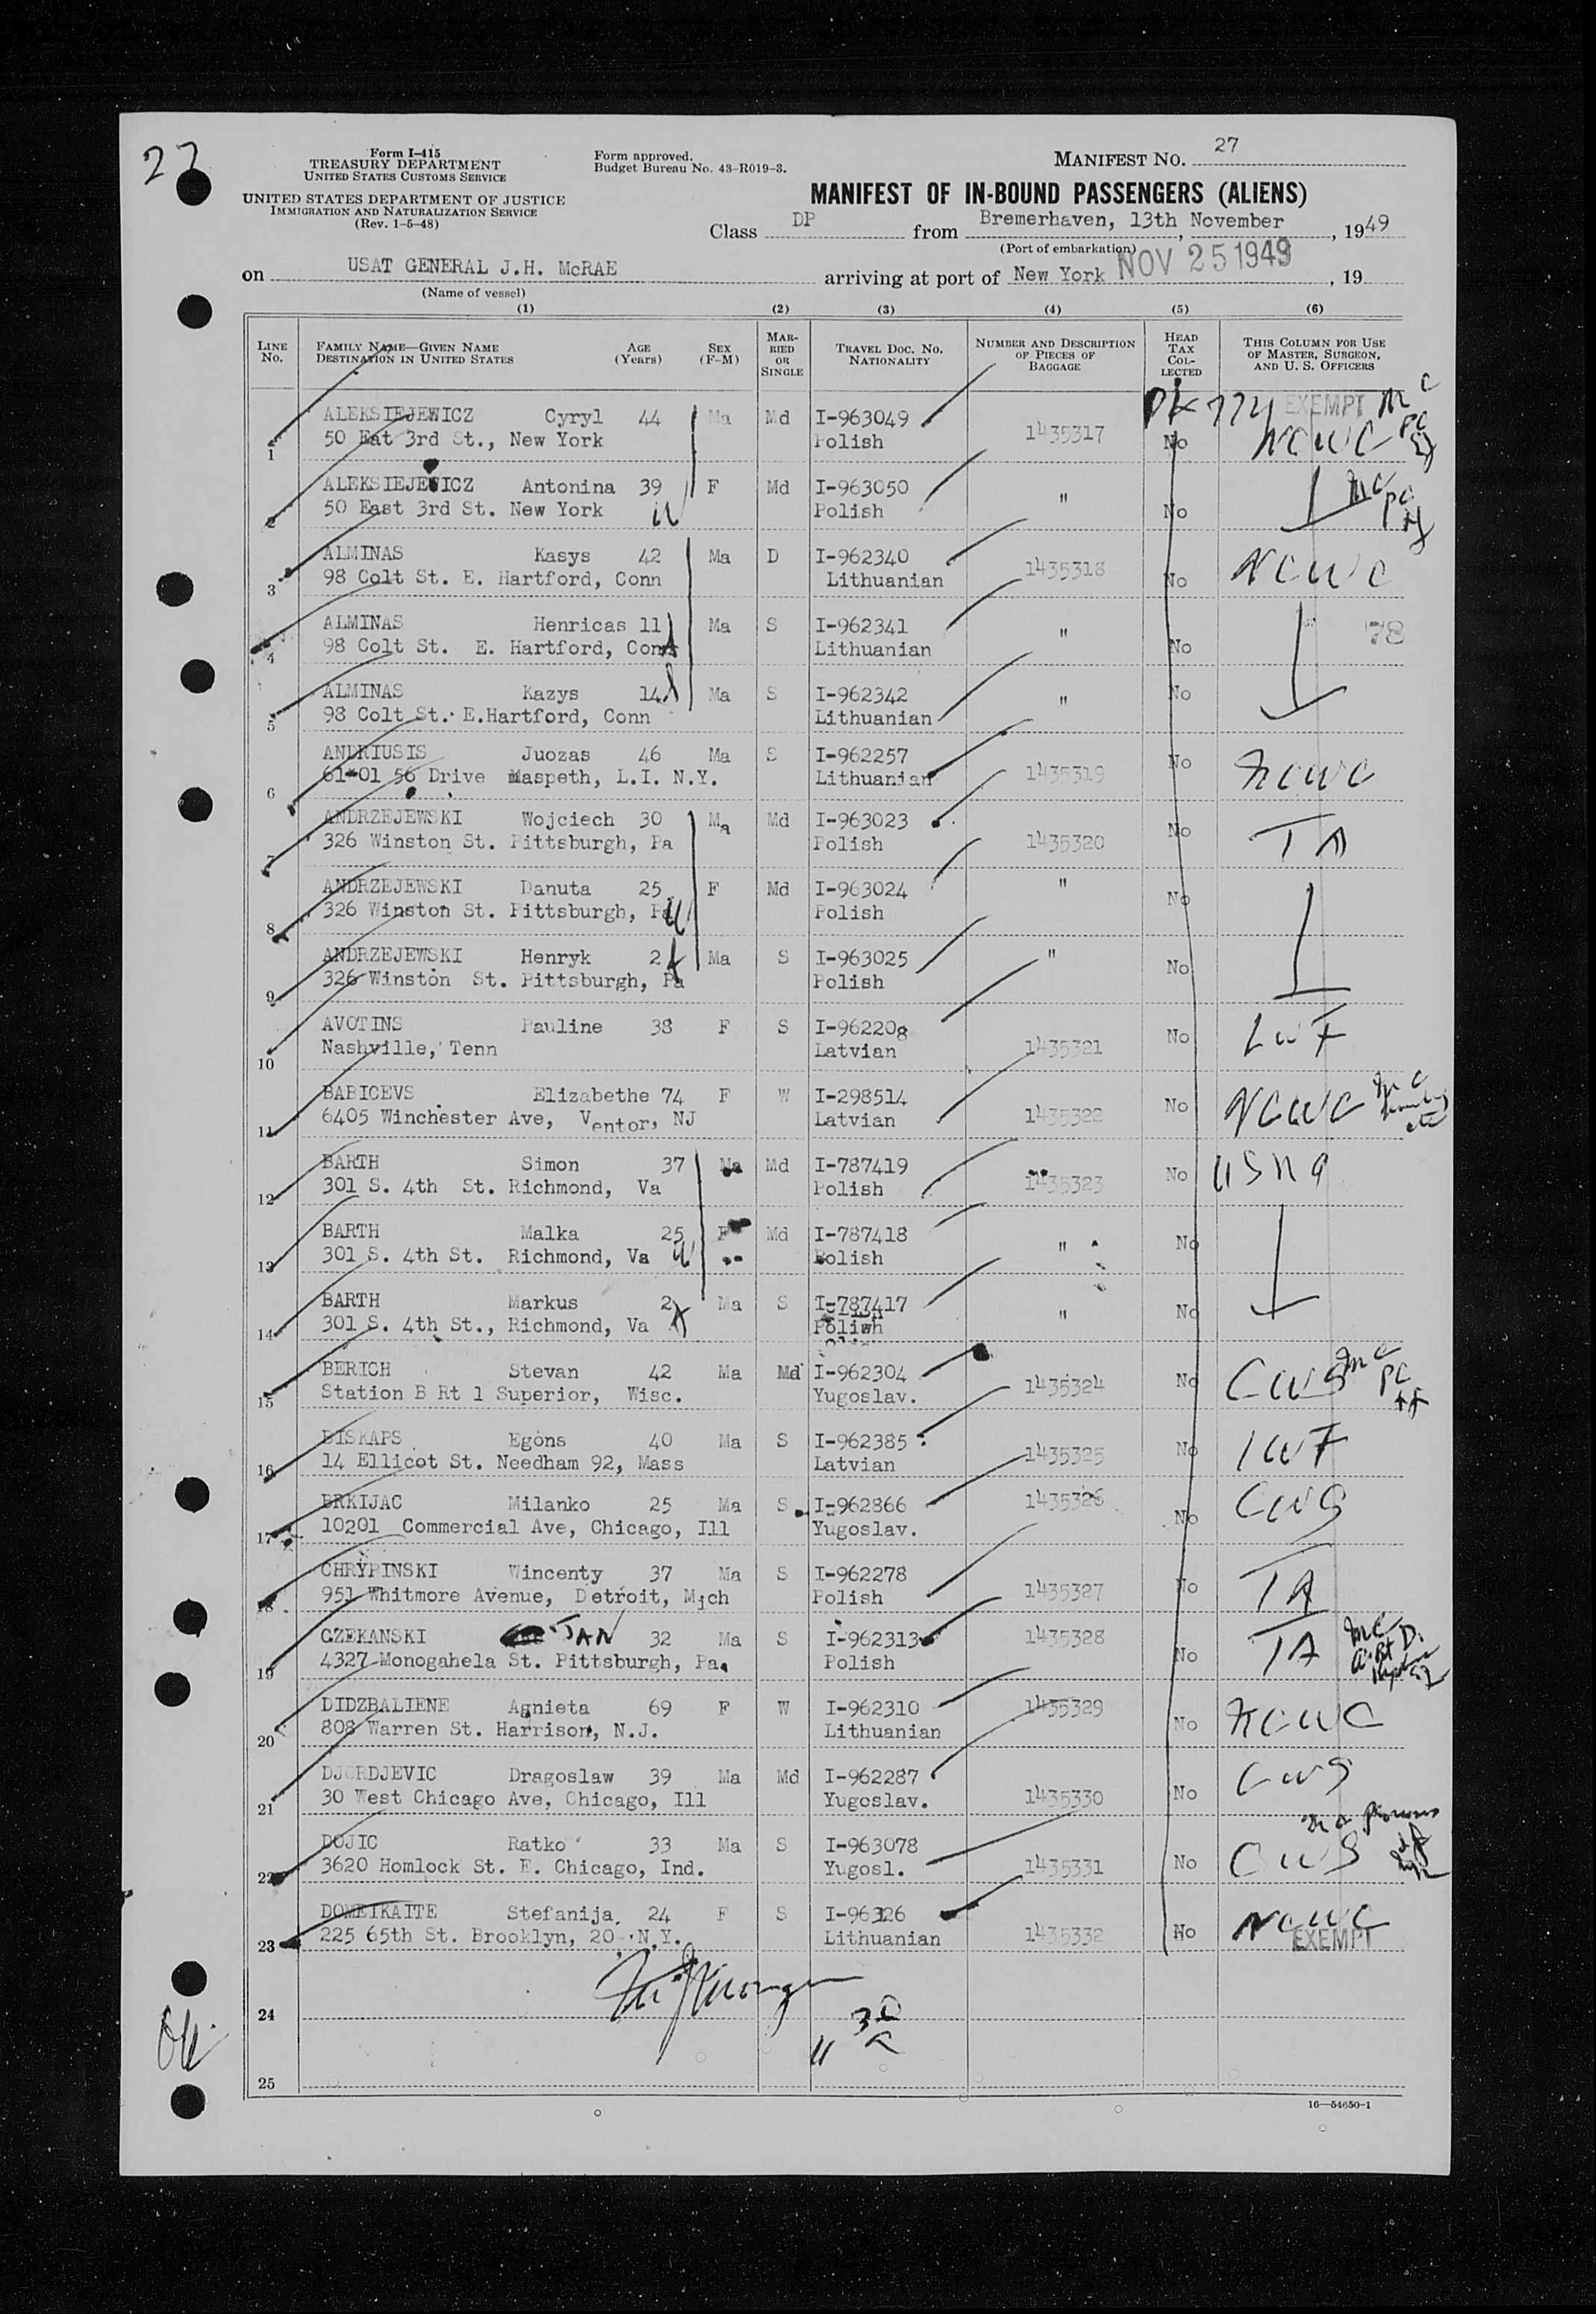 27
Form I-415
TREASURY DEPARTMENT
UNITED STATES CUSTOMS SERVICE
UNITED STATES DEPARTMENT OF JUSTICE
IMMIGRATION AND NATURALIZATION SERVICE
(Rev. 1-5-48)
Form approved.
Budget Bureau No. 43-R019-3.
MANIFEST NO. 27
MANIFEST OF IN-BOUND PASSENGERS (ALIENS)
Class DP from Bremerhaven, 13th November, 1949
(Port of embarkation)
on USAT GENERAL J.H. McRAE arriving at port of New York NOV 25 1949, 19
(Name of vessel)
(1) (2) (3) (4) (5) (6)
LINE No. FAMILY NAME—GIVEN NAME DESTINATION IN UNITED STATES AGE (Years) SEX (F-M) MARRIED OR SINGLE TRAVEL DOC. NO. NATIONALITY NUMBER AND DESCRIPTION OF PIECES OF BAGGAGE HEAD TAX COLLECTED THIS COLUMN FOR USE OF MASTER, SURGEON, AND U. S. OFFICERS
1 ALEKSIEJEWICZ Cyryl 44 Ma Md I-963049 1435317 No EXEMPT NCWC MC PC
50 Eat 3rd St., New York Polish
2 ALEKSIEJEWICZ Antonina 39 F Md I-963050 " No MC PC
50 East 3rd St. New York Polish
3 ALMINAS Kasys 42 Ma D I-962340 1435318 No NCWC
98 Colt St. E. Hartford, Conn Lithuanian
4 ALMINAS Henricas 11 Ma S I-962341 " No 78
98 Colt St. E. Hartford, Conn Lithuanian
5 ALMINAS Kazys 14 Ma S I-962342 " No
98 Colt St. E.Hartford, Conn Lithuanian
6 ANDRIUSIS Juozas 46 Ma S I-962257 1435319 No NCWC
61-01 56 Drive Maspeth, L.I. N.Y. Lithuanian
7 ANDRZEJEWSKI Wojciech 30 Ma Md I-963023 1435320 No TA
326 Winston St. Pittsburgh, Pa Polish
8 ANDRZEJEWSKI Danuta 25 F Md I-963024 " No
326 Winston St. Pittsburgh, Pa Polish
9 ANDRZEJEWSKI Henryk 2 Ma S I-963025 " No
326 Winston St. Pittsburgh, Pa Polish
10 AVOTINS Pauline 38 F S I-962208 1435321 No LWF
Nashville, Tenn Latvian
11 BABICEVS Elizabethe 74 F W I-298514 1435322 No NCWC MC
6405 Winchester Ave, Ventor, NJ Latvian
12 BARTH Simon 37 Ma Md I-787419 1435323 No USNA
301 S. 4th St. Richmond, Va Polish
13 BARTH Malka 25 F Md I-787418 " No
301 S. 4th St. Richmond, Va Polish
14 BARTH Markus 2 Ma S I-787417 " No
301 S. 4th St., Richmond, Va Polish
15 BERICH Stevan 42 Ma Md I-962304 1435324 No CWS MC PC
Station B Rt 1 Superior, Wisc. Yugoslav.
16 BISKAPS Egons 40 Ma S I-962385 1435325 No LWF
14 Ellicot St. Needham 92, Mass Latvian
17 BRKIJAC Milanko 25 Ma S I-962866 1435326 No CWS
10201 Commercial Ave, Chicago, Ill Yugoslav.
18 CHRYPINSKI Wincenty 37 Ma S I-962278 1435327 No TA
951 Whitmore Avenue, Detroit, Mich Polish
19 CZEKANSKI JAN 32 Ma S I-962313 1435328 No TA MC
4327 Monogahela St. Pittsburgh, Pa. Polish
20 DIDZBALIENE Agnieta 69 F W I-962310 1435329 No NCWC
808 Warren St. Harrison, N.J. Lithuanian
21 DJORDJEVIC Dragoslaw 39 Ma Md I-962287 1435330 No CWS
30 West Chicago Ave, Chicago, Ill Yugoslav.
22 DOJIC Ratko 33 Ma S I-963078 1435331 No CWS
3620 Homlock St. E. Chicago, Ind. Yugosl.
23 DOMEIKAITE Stefanija 24 F S I-96326 1435332 No NCWC EXEMPT
225 65th St. Brooklyn, 20 N.Y. Lithuanian
24
25
16—54650-1